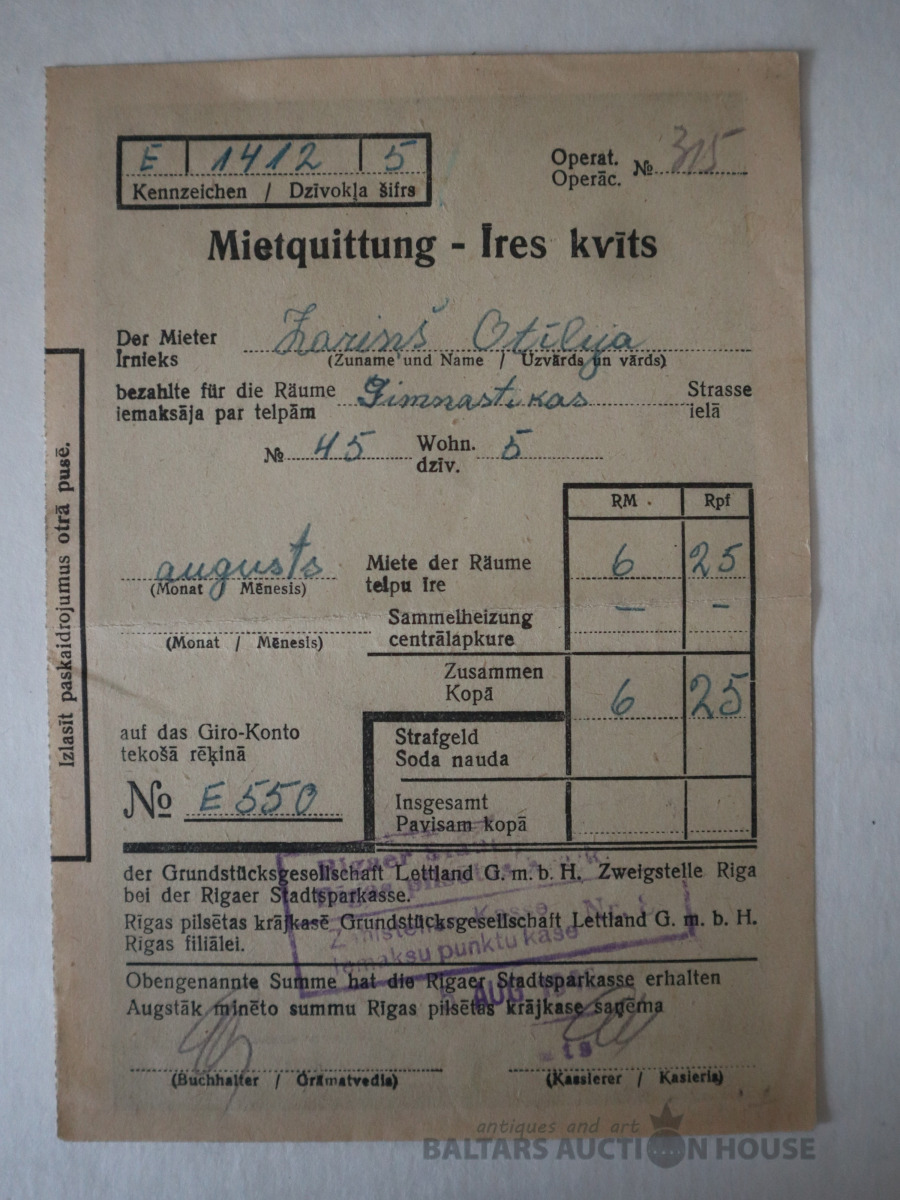 E 1412 5
Kennzeichen / Dzīvokļa šifrs
Operat.
Operāc. № 315
Mietquittung - Īres kvīts
Der Mieter
Īrnieks Zariņš Otīlija
(Zuname und Name / Uzvārds un vārds)
bezahlte für die Räume
iemaksāja par telpām Gimnastikas Strasse
ielā
№ 45 Wohn.
dzīv. 5
RM Rpf
augusts
(Monat / Mēnesis)
Miete der Räume
telpu īre 6 25
Sammelheizung
centrālapkure — -
(Monat / Mēnesis)
Zusammen
Kopā 6 25
auf das Giro-Konto
tekošā rēķinā
№ E 550
Strafgeld
Soda nauda
Insgesamt
Pavisam kopā
der Grundstücksgesellschaft Lettland G. m. b. H. Zweigstelle Riga
bei der Rigaer Stadtsparkasse.
Rīgas pilsētas krājkasē Grundstücksgesellschaft Lettland G. m. b. H.
Rīgas filiālei.
Rigaer
Rīgas pilsētas
Kasse Nr.
Iemaksu punktu kase
AUG
Obengenannte Summe hat die Rigaer Stadtsparkasse erhalten
Augstāk minēto summu Rīgas pilsētas krājkase saņēma
(Buchhalter / Grāmatvedis)
(Kassierer / Kasieris)
Izlasīt paskaidrojumus otrā pusē.
antiques and art
BALTARS AUCTION HOUSE